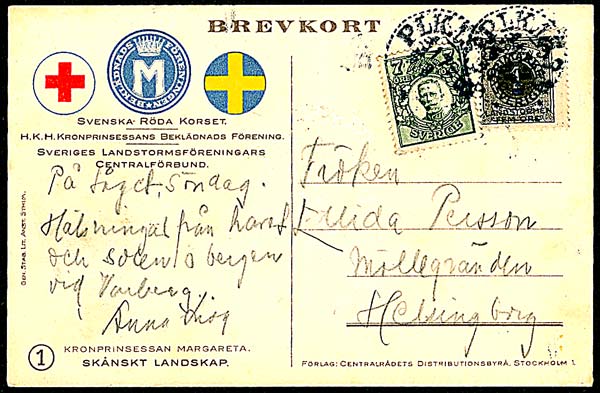 BREVKORT
BEKLÄDNADS FÖRENINGEN
M
SVENSKA RÖDA KORSET.
H.K.H. KRONPRINSESSANS BEKLÄDNADS FÖRENING.
SVERIGES LANDSTORMSFÖRENINGARS
CENTRALFÖRBUND.
På tåget, Söndag.
Hälsningar från havet
och solen o bergen
vid Varberg.
Anna
GEN. STAB. LIT. ANST. STHLM.
1
KRONPRINSESSAN MARGARETA.
SKÅNSKT LANDSKAP.
PLK
PLK
7
SVERIGE
LANDSTORMEN
FEM ÖRE
Fröken
Persson
Möllegränden
Helsingborg
FÖRLAG: CENTRALRÅDETS DISTRIBUTIONSBYRÅ. STOCKHOLM 1.